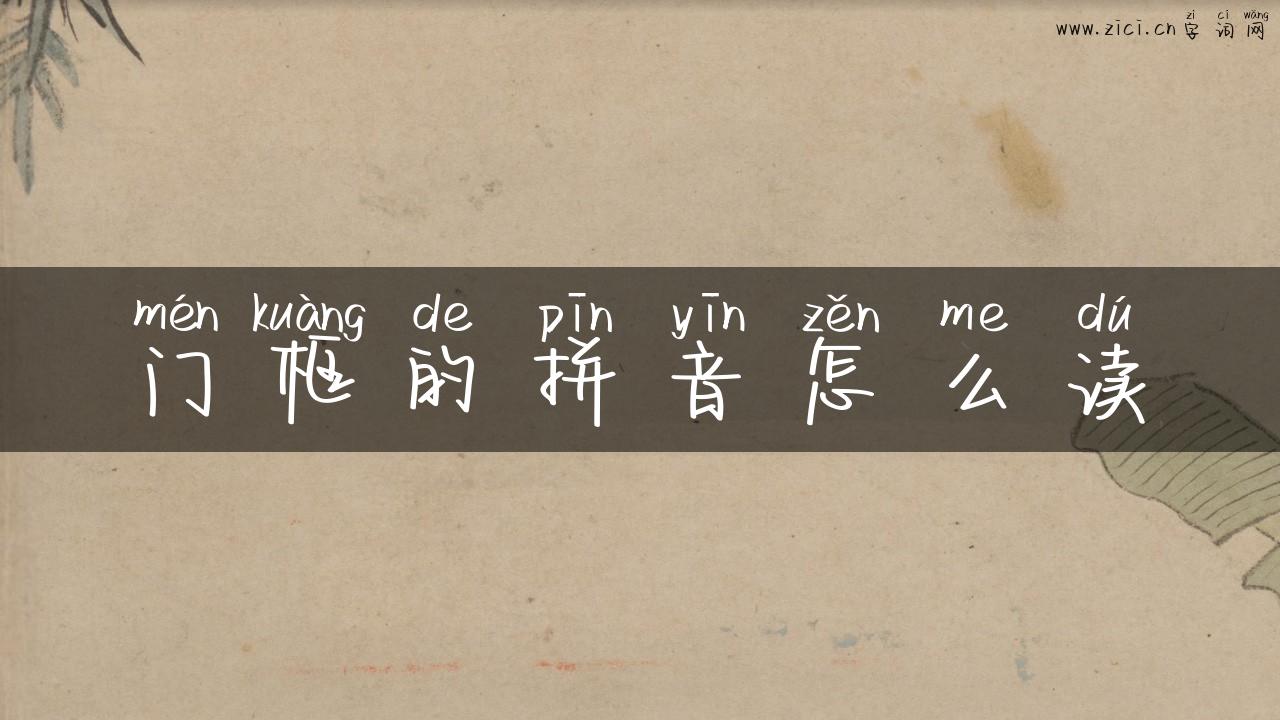 zì cí wǎng
www.zici.cn 字词网
mén kuàng de pīn yīn zěn me dú
门框的拼音怎么读